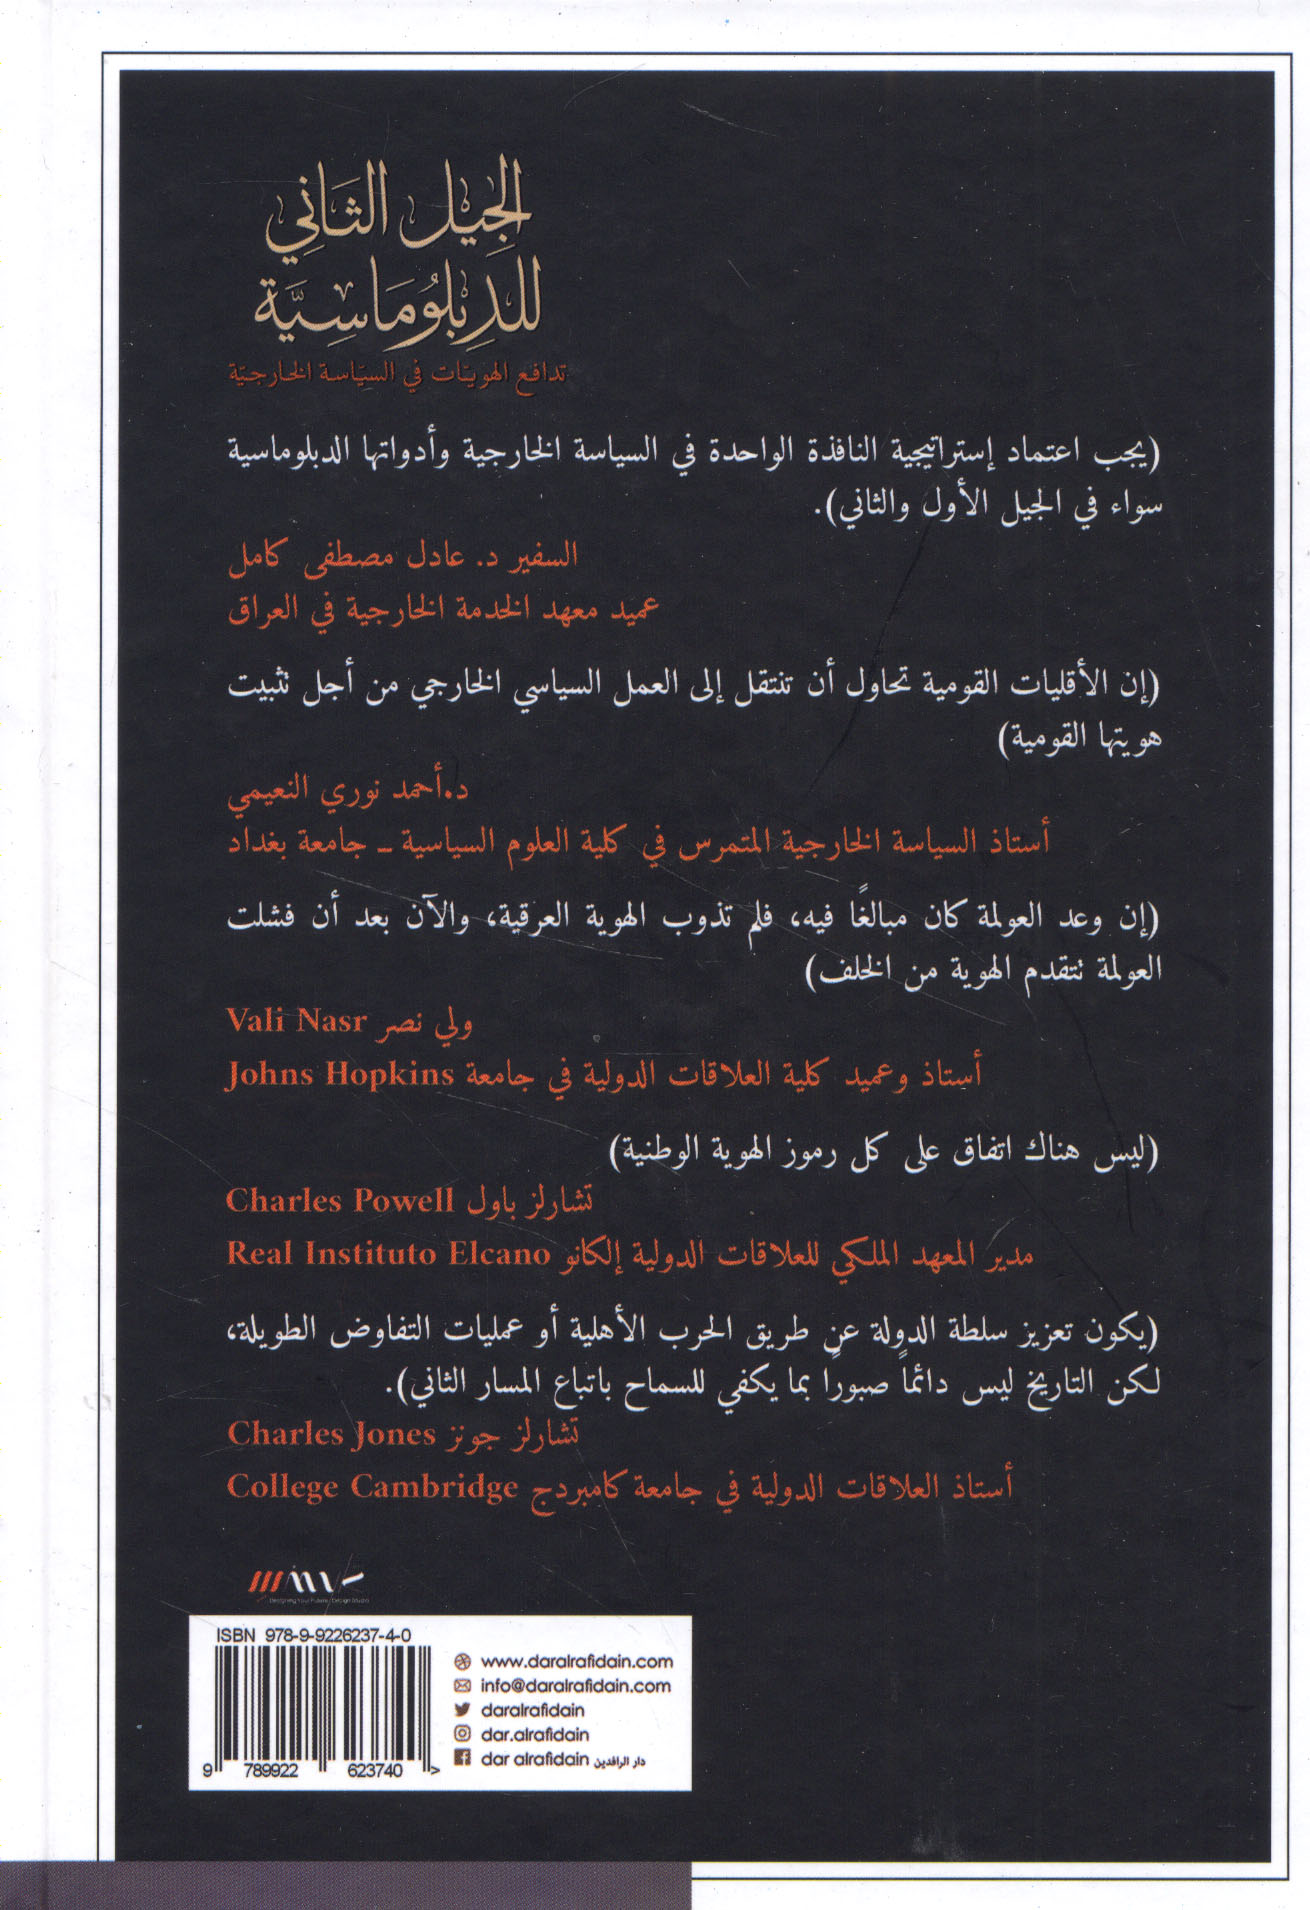 الجِيل الثَاني
للدِبلُومَاسِيَّة
تدافع الهويّات في السيّاسة الخارجيّة
(يجب اعتماد إستراتيجية النافذة الواحدة في السياسة الخارجية وأدواتها الدبلوماسية
سواء في الجيل الأول والثاني).
السفير د. عادل مصطفى كامل
عميد معهد الخدمة الخارجية في العراق
(إن الأقليات القومية تحاول أن تنتقل إلى العمل السياسي الخارجي من أجل تثبيت
هويتها القومية)
د.أحمد نوري النعيمي
أستاذ السياسة الخارجية المتمرس في كلية العلوم السياسية - جامعة بغداد
(إن وعد العولمة كان مبالغًا فيه، فلم تذوب الهوية العرقية، والآن بعد أن فشلت
العولمة تتقدم الهوية من الخلف)
ولي نصر Vali Nasr
أستاذ وعميد كلية العلاقات الدولية في جامعة Johns Hopkins
(ليس هناك اتفاق على كل رموز الهوية الوطنية)
تشارلز باول Charles Powell
مدير المعهد الملكي للعلاقات الدولية إلكانو Real Instituto Elcano
(يكون تعزيز سلطة الدولة عن طريق الحرب الأهلية أو عمليات التفاوض الطويلة،
لكن التاريخ ليس دائماً صبوراً بما يكفي للسماح باتباع المسار الثاني).
تشارلز جونز Charles Jones
أستاذ العلاقات الدولية في جامعة كامبردج College Cambridge
Designing Your Future / Design Studio
ISBN 978-9-9226237-4-0
9 789922 623740 >
www.daralrafidain.com
info@daralrafidain.com
daralrafidain
dar.alrafidain
dar alrafidain دار الرافدين